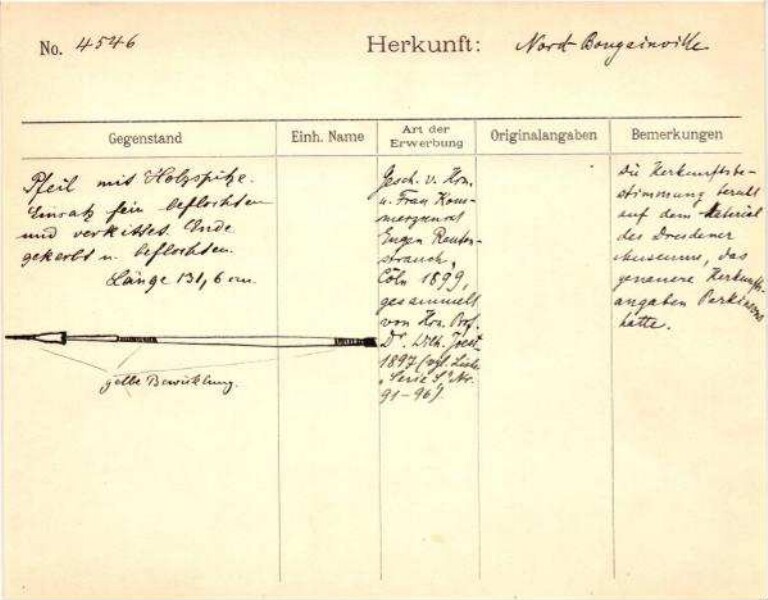 No. 4546 Herkunft: Nord-Bougainville
Gegenstand Einh. Name Art der Erwerbung Originalangaben Bemerkungen
Pfeil mit Holzspitze.
Einsatz fein beflochten
und verkittet. Ende
gekerbt u. beflochten.
Länge 131,6 cm.
gelbe Bewicklung.
Gesch. v. Hrn.
u. Frau Kom-
merzienrat
Eugen Rauten-
strauch,
Cöln 1899,
gesammelt
von Hrn. Prof.
Dr. Wilh. Joest
1897 (vgl. Liste
"Serie S," Nr.
91-96).
Die Herkunftsbe-
stimmung beruht
auf dem Material
des Dresdener
Museums, das
genauere Herkunfts-
angaben Parkinsons
hatte.